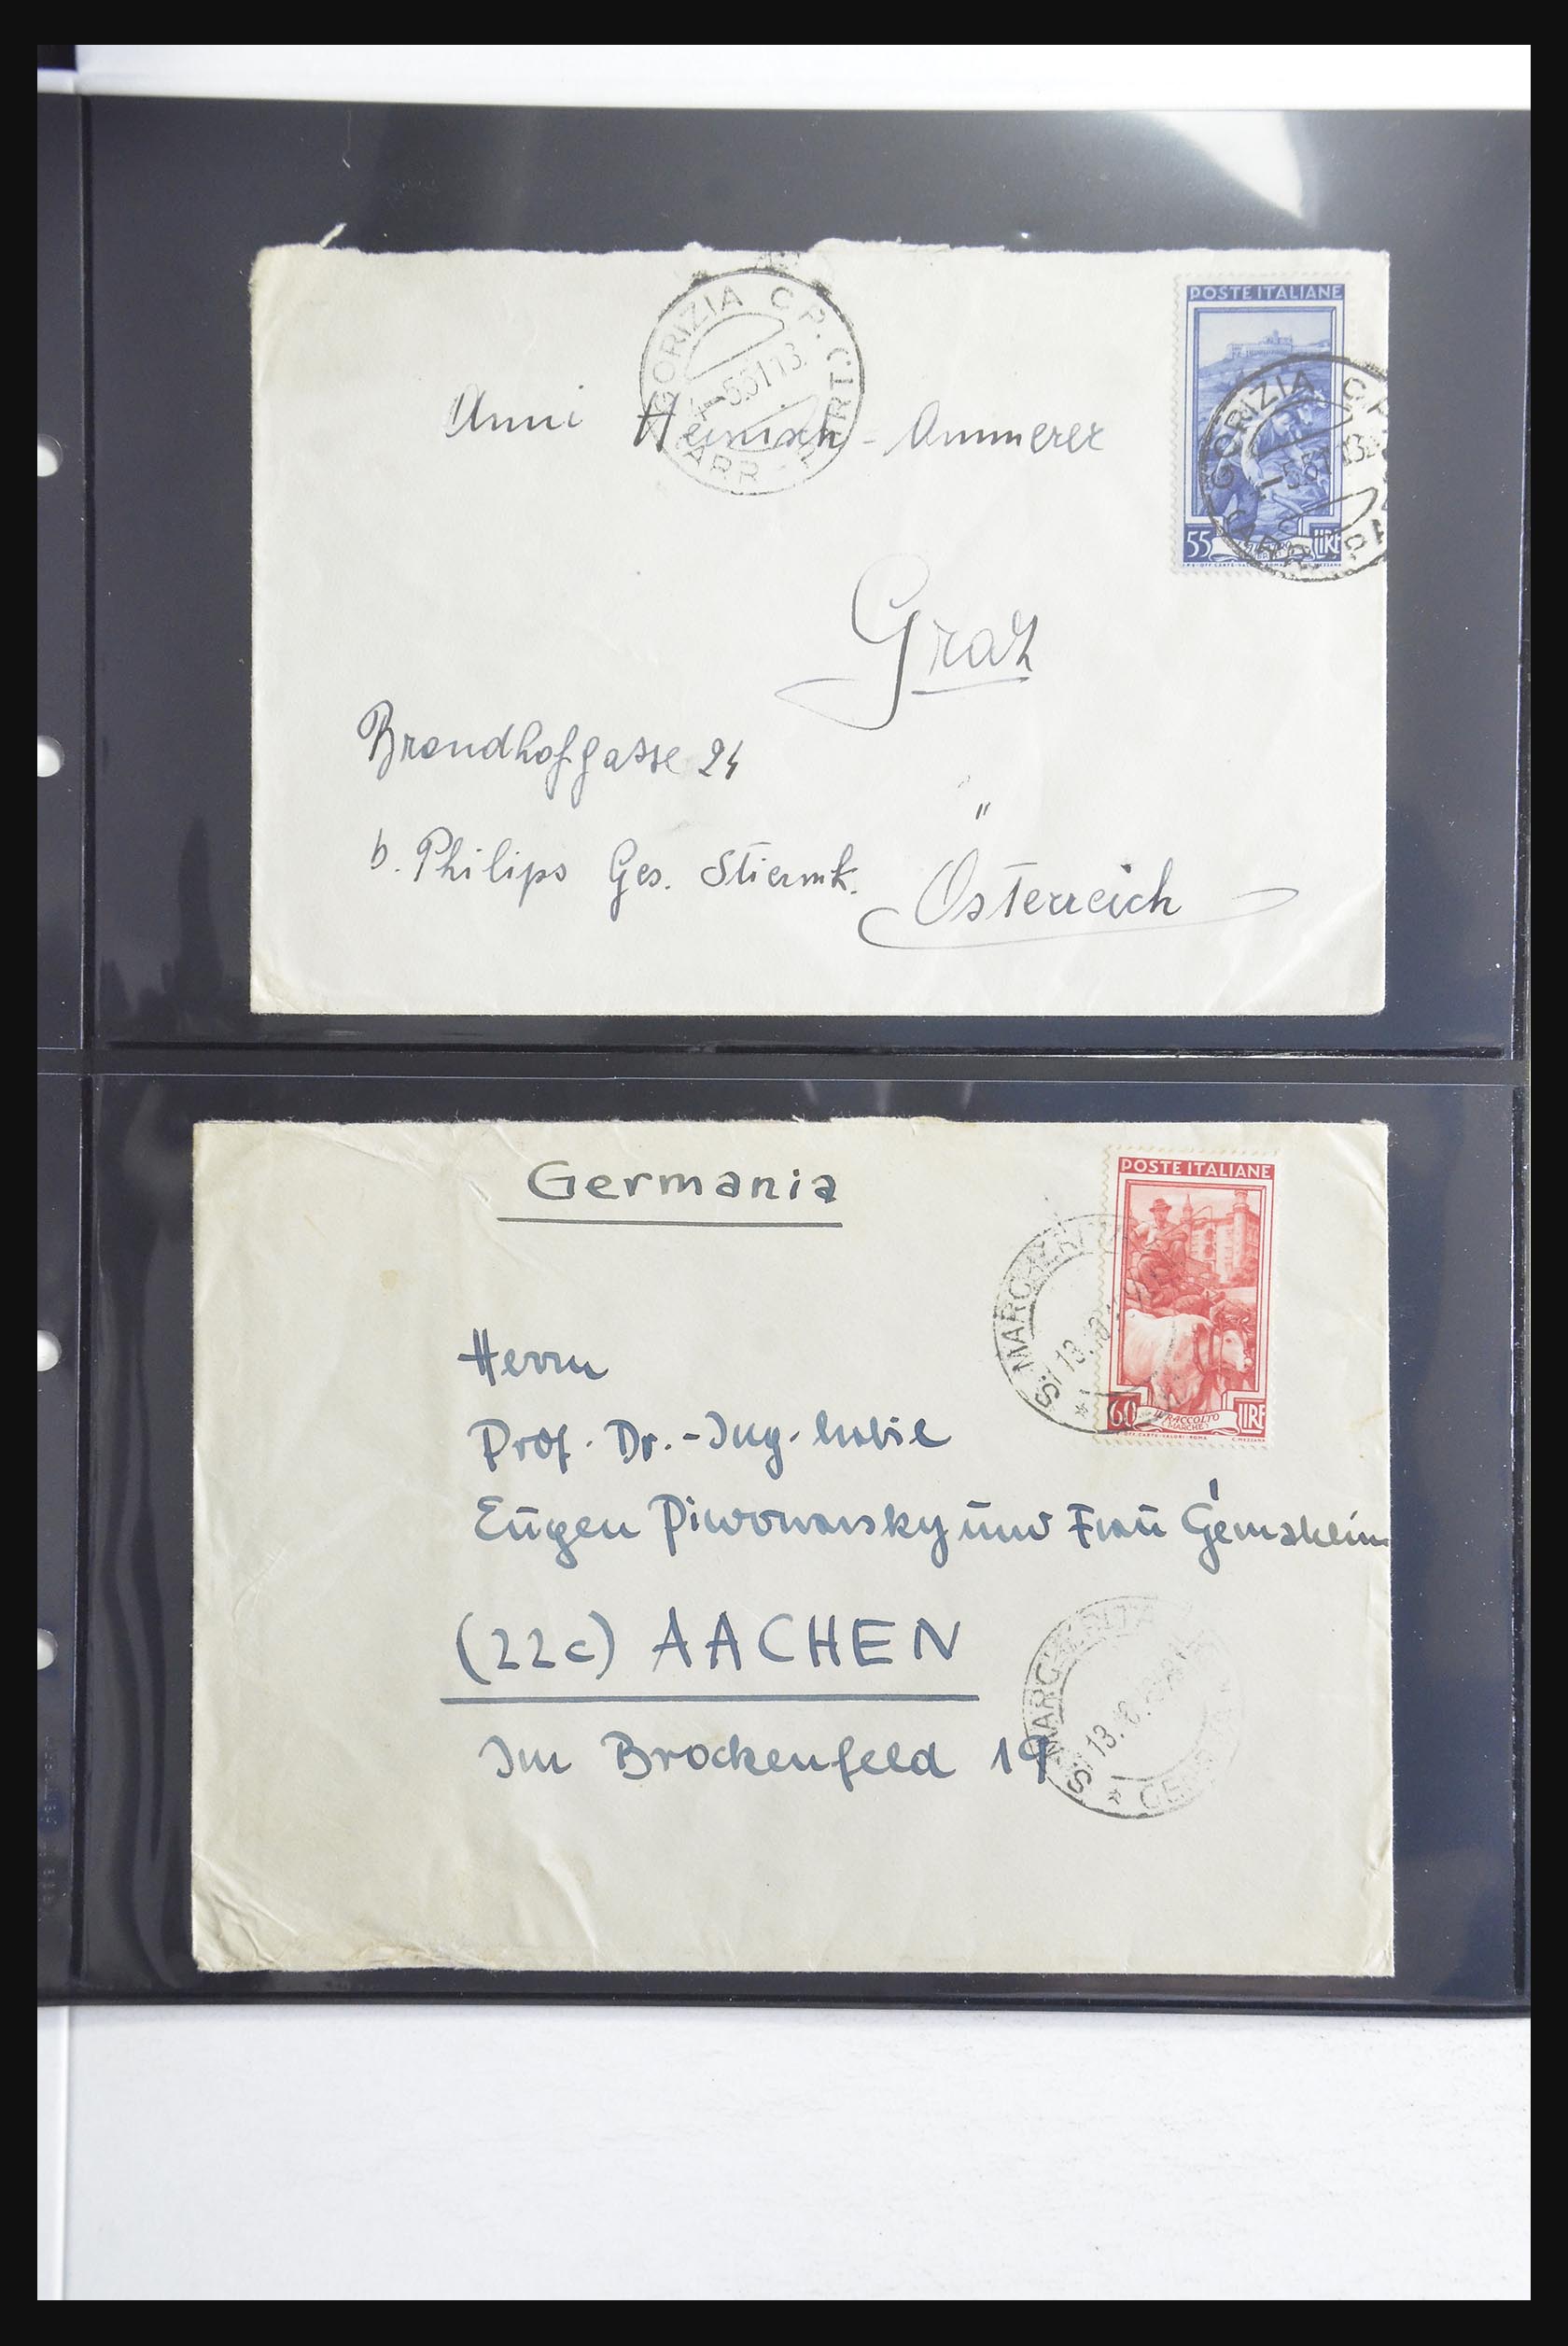 GORIZIA C.P.
ARR.
POSTE ITALIANE
55 LIRE
GORIZIA C.P.
Anni Heinisch-Ammerer
Graz
Brandhofgasse 24
b. Philips Ges. Stiermk.
"
Österreich
Germania
POSTE ITALIANE
60 IL RACCOLTO LIRE
(MARCHE)
S. MARGHERITA
13.
Herrn
Prof. Dr.-Ing. habil
Eugen Piwowarsky und Frau
(22c) AACHEN
Im Brockenfeld 19
S. MARGHERITA
13.